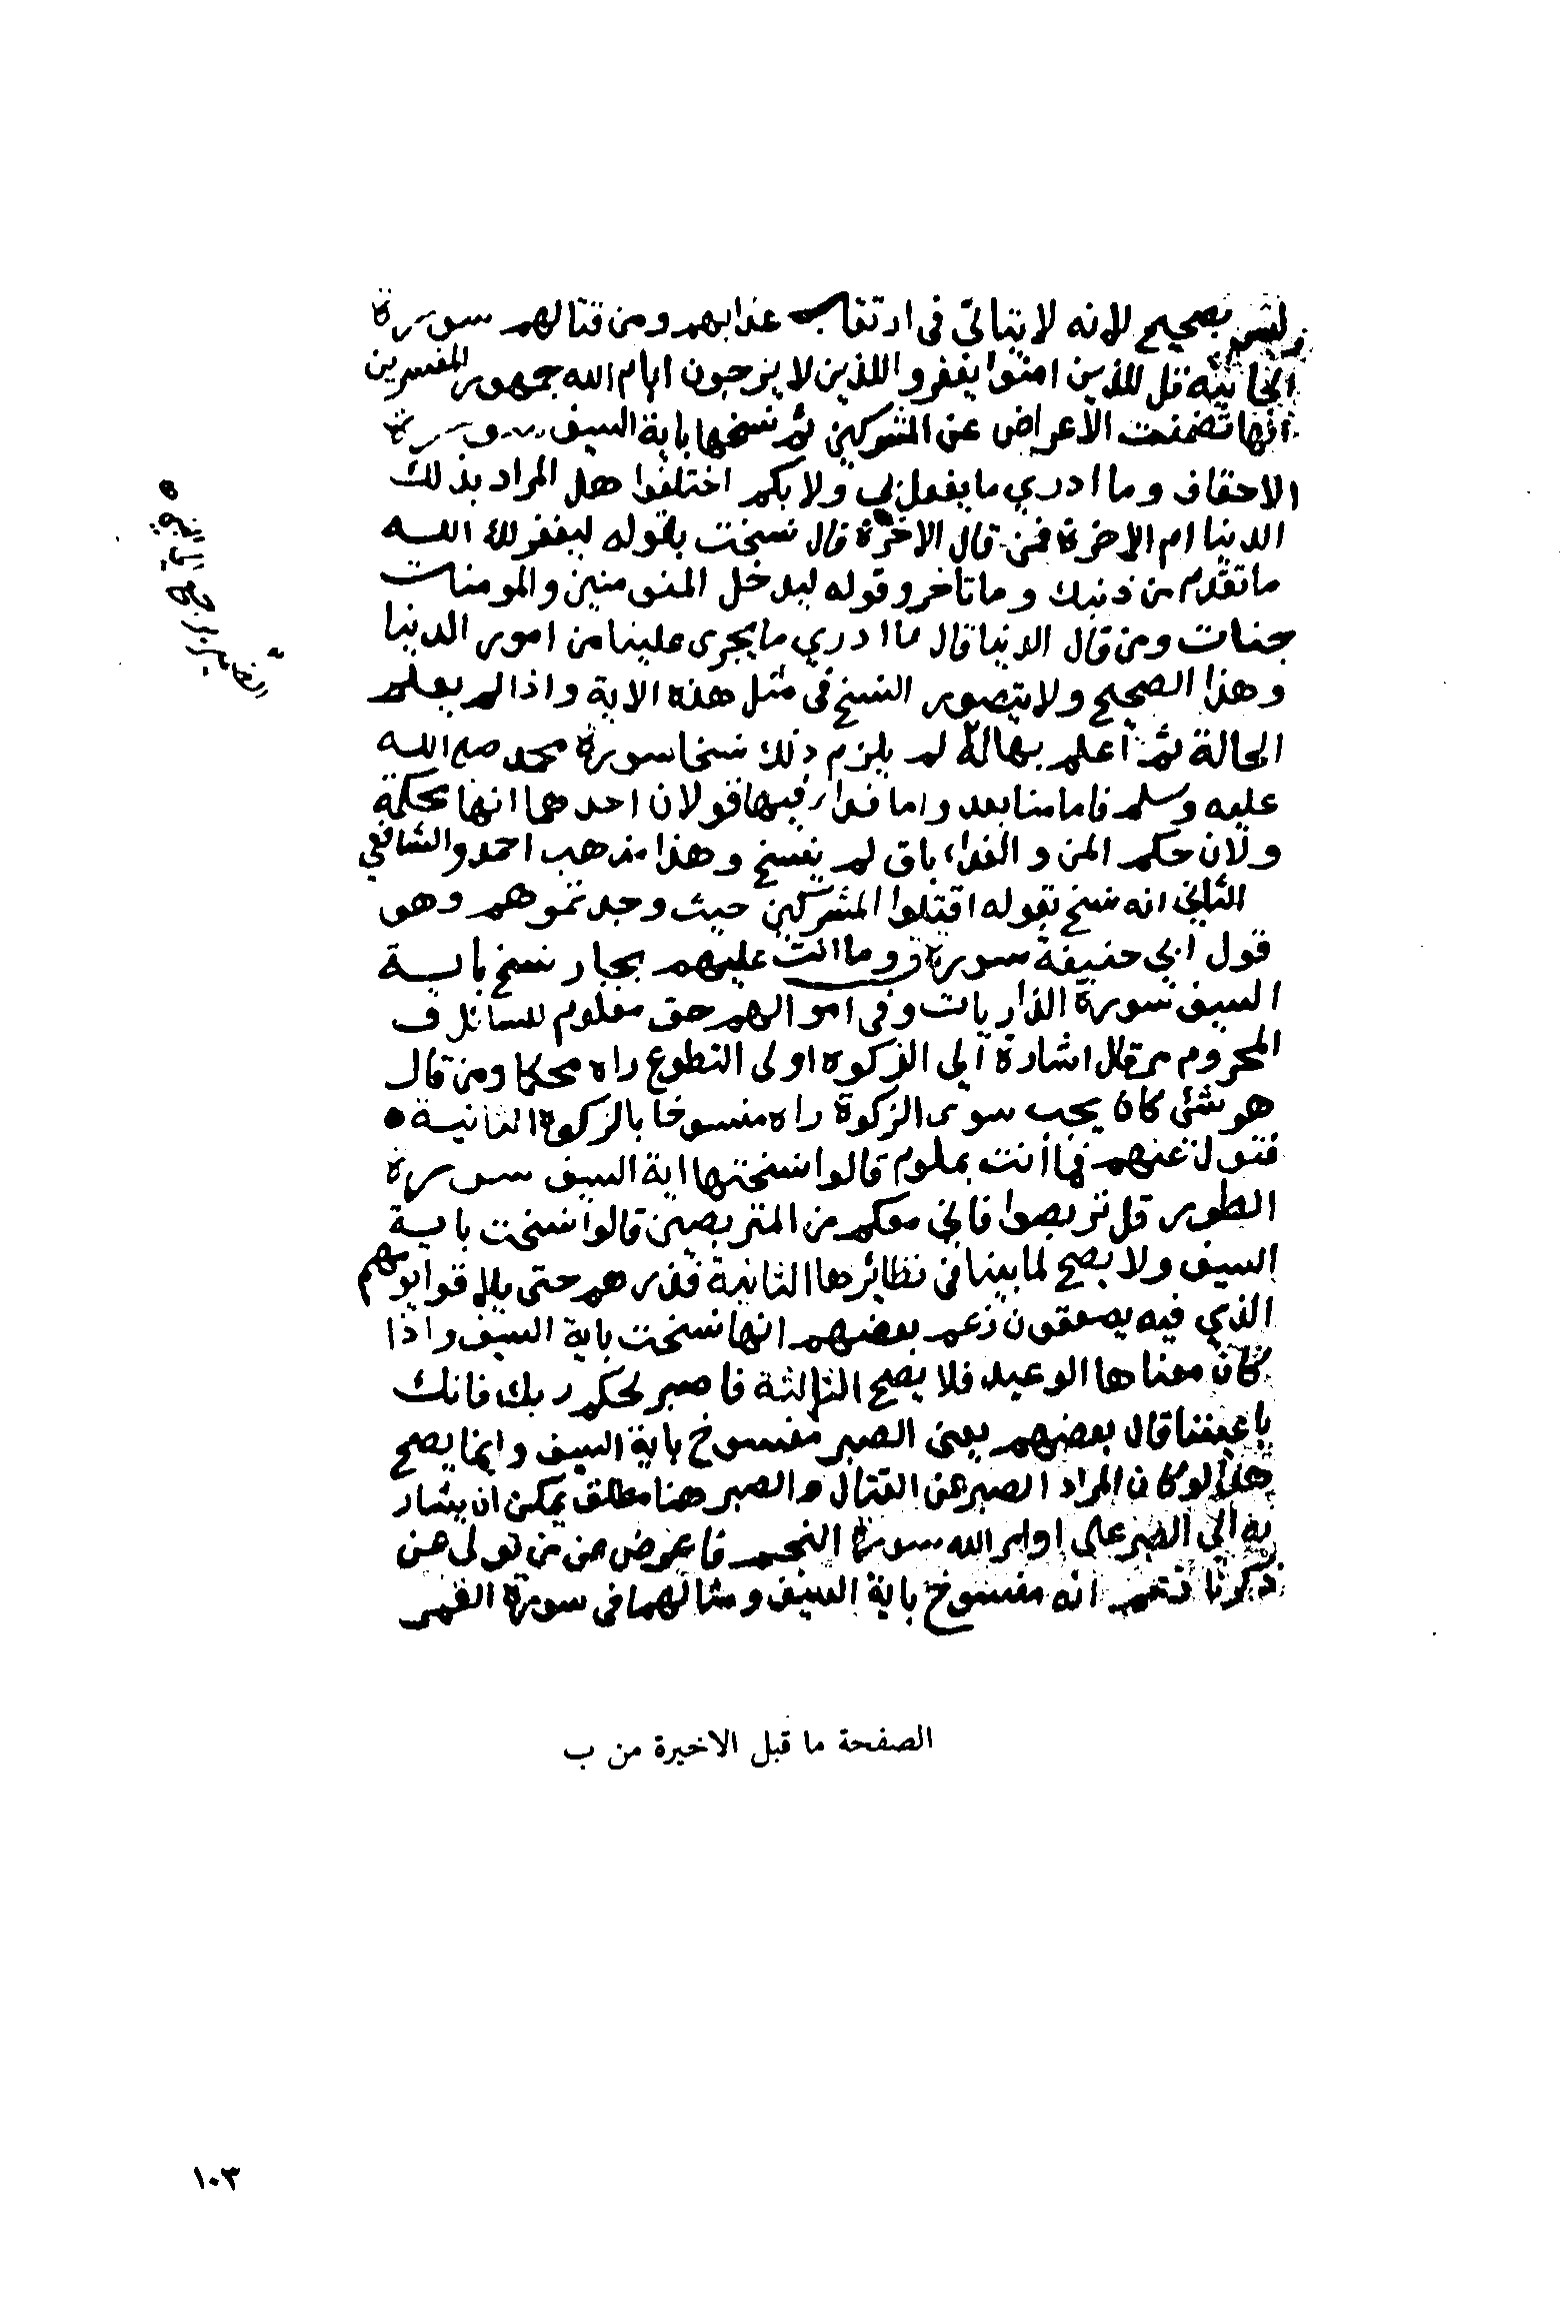 وليس بصحيح لانه لا يتنافى في ارتقاب عذابهم ومن قتالهم سورة
الجاثية قل للذين امنوا يغفروا للذين لا يرجون ايام الله جمهور المفسرين
انها تضمنت الاعراض عن المشركين ثم نسخها باية السيف سورة
الاحقاف وما ادري ما يفعل بي ولا بكم اختلفوا هل المراد بذلك
الدنيا ام الاخرة فمن قال الاخرة قال نسخت بقوله ليغفر لك الله
ما تقدم من ذنبك وما تاخر وقوله ليدخل المومنين والمومنات
جنات ومن قال الدنيا قال ما ادري ما يجرى علينا من امور الدنيا
وهذا الصحيح ولا يتصور النسخ في مثل هذه الاية واذا لم يعلم
الحالة ثم أعلم بحالة لم يلزم ذلك نسخا سورة محمد صلى الله
عليه وسلم فاما منا بعد واما فداء فيها قولان احدهما انها محكمة
ولان حكم المن والفداء باق لم ينسخ وهذا مذهب احمد والشافعي
الثاني انه نسخ بقوله اقتلوا المشركين حيث وجدتموهم وهو
قول ابي حنيفة سورة ق وما انت عليهم بجبار نسخ باية
السيف سورة الذاريات وفى اموالهم حق معلوم للسائل و
المحروم من قال اشارة الى الزكوة او لى التطوع راه محكما ومن قال
هو شئ كان يجب سوى الزكوة راه منسوخا بالزكوة الثانية ●
فتول عنهم فما أنت بملوم قالوا نسختها اية السيف سورة
الطور قل تربصوا فاني معكم من المتربصين قالوا نسخت باية
السيف ولا يصح لما بينا في نظائرها الثانية فذرهم حتى يلاقوا يومهم
الذي فيه يصعقون زعم بعضهم انها نسخت باية السيف واذا
كان معناها الوعيد فلا يصح الثالثة فاصبر لحكم ربك فانك
باعيننا قال بعضهم يعنى الصبر منسوخ باية السيف وانما يصح
هذا لو كان المراد الصبر عن القتال والصبر هنا مطلق يمكن ان يشار
به الى الصبر على اوامر الله سورة النجم فاعرض عن من تولى عن
ذكرنا زعم انه منسوخ باية السيف ومثالهما في سورة القمر
الصفحة ما قبل الاخيرة من ب
١٠٣